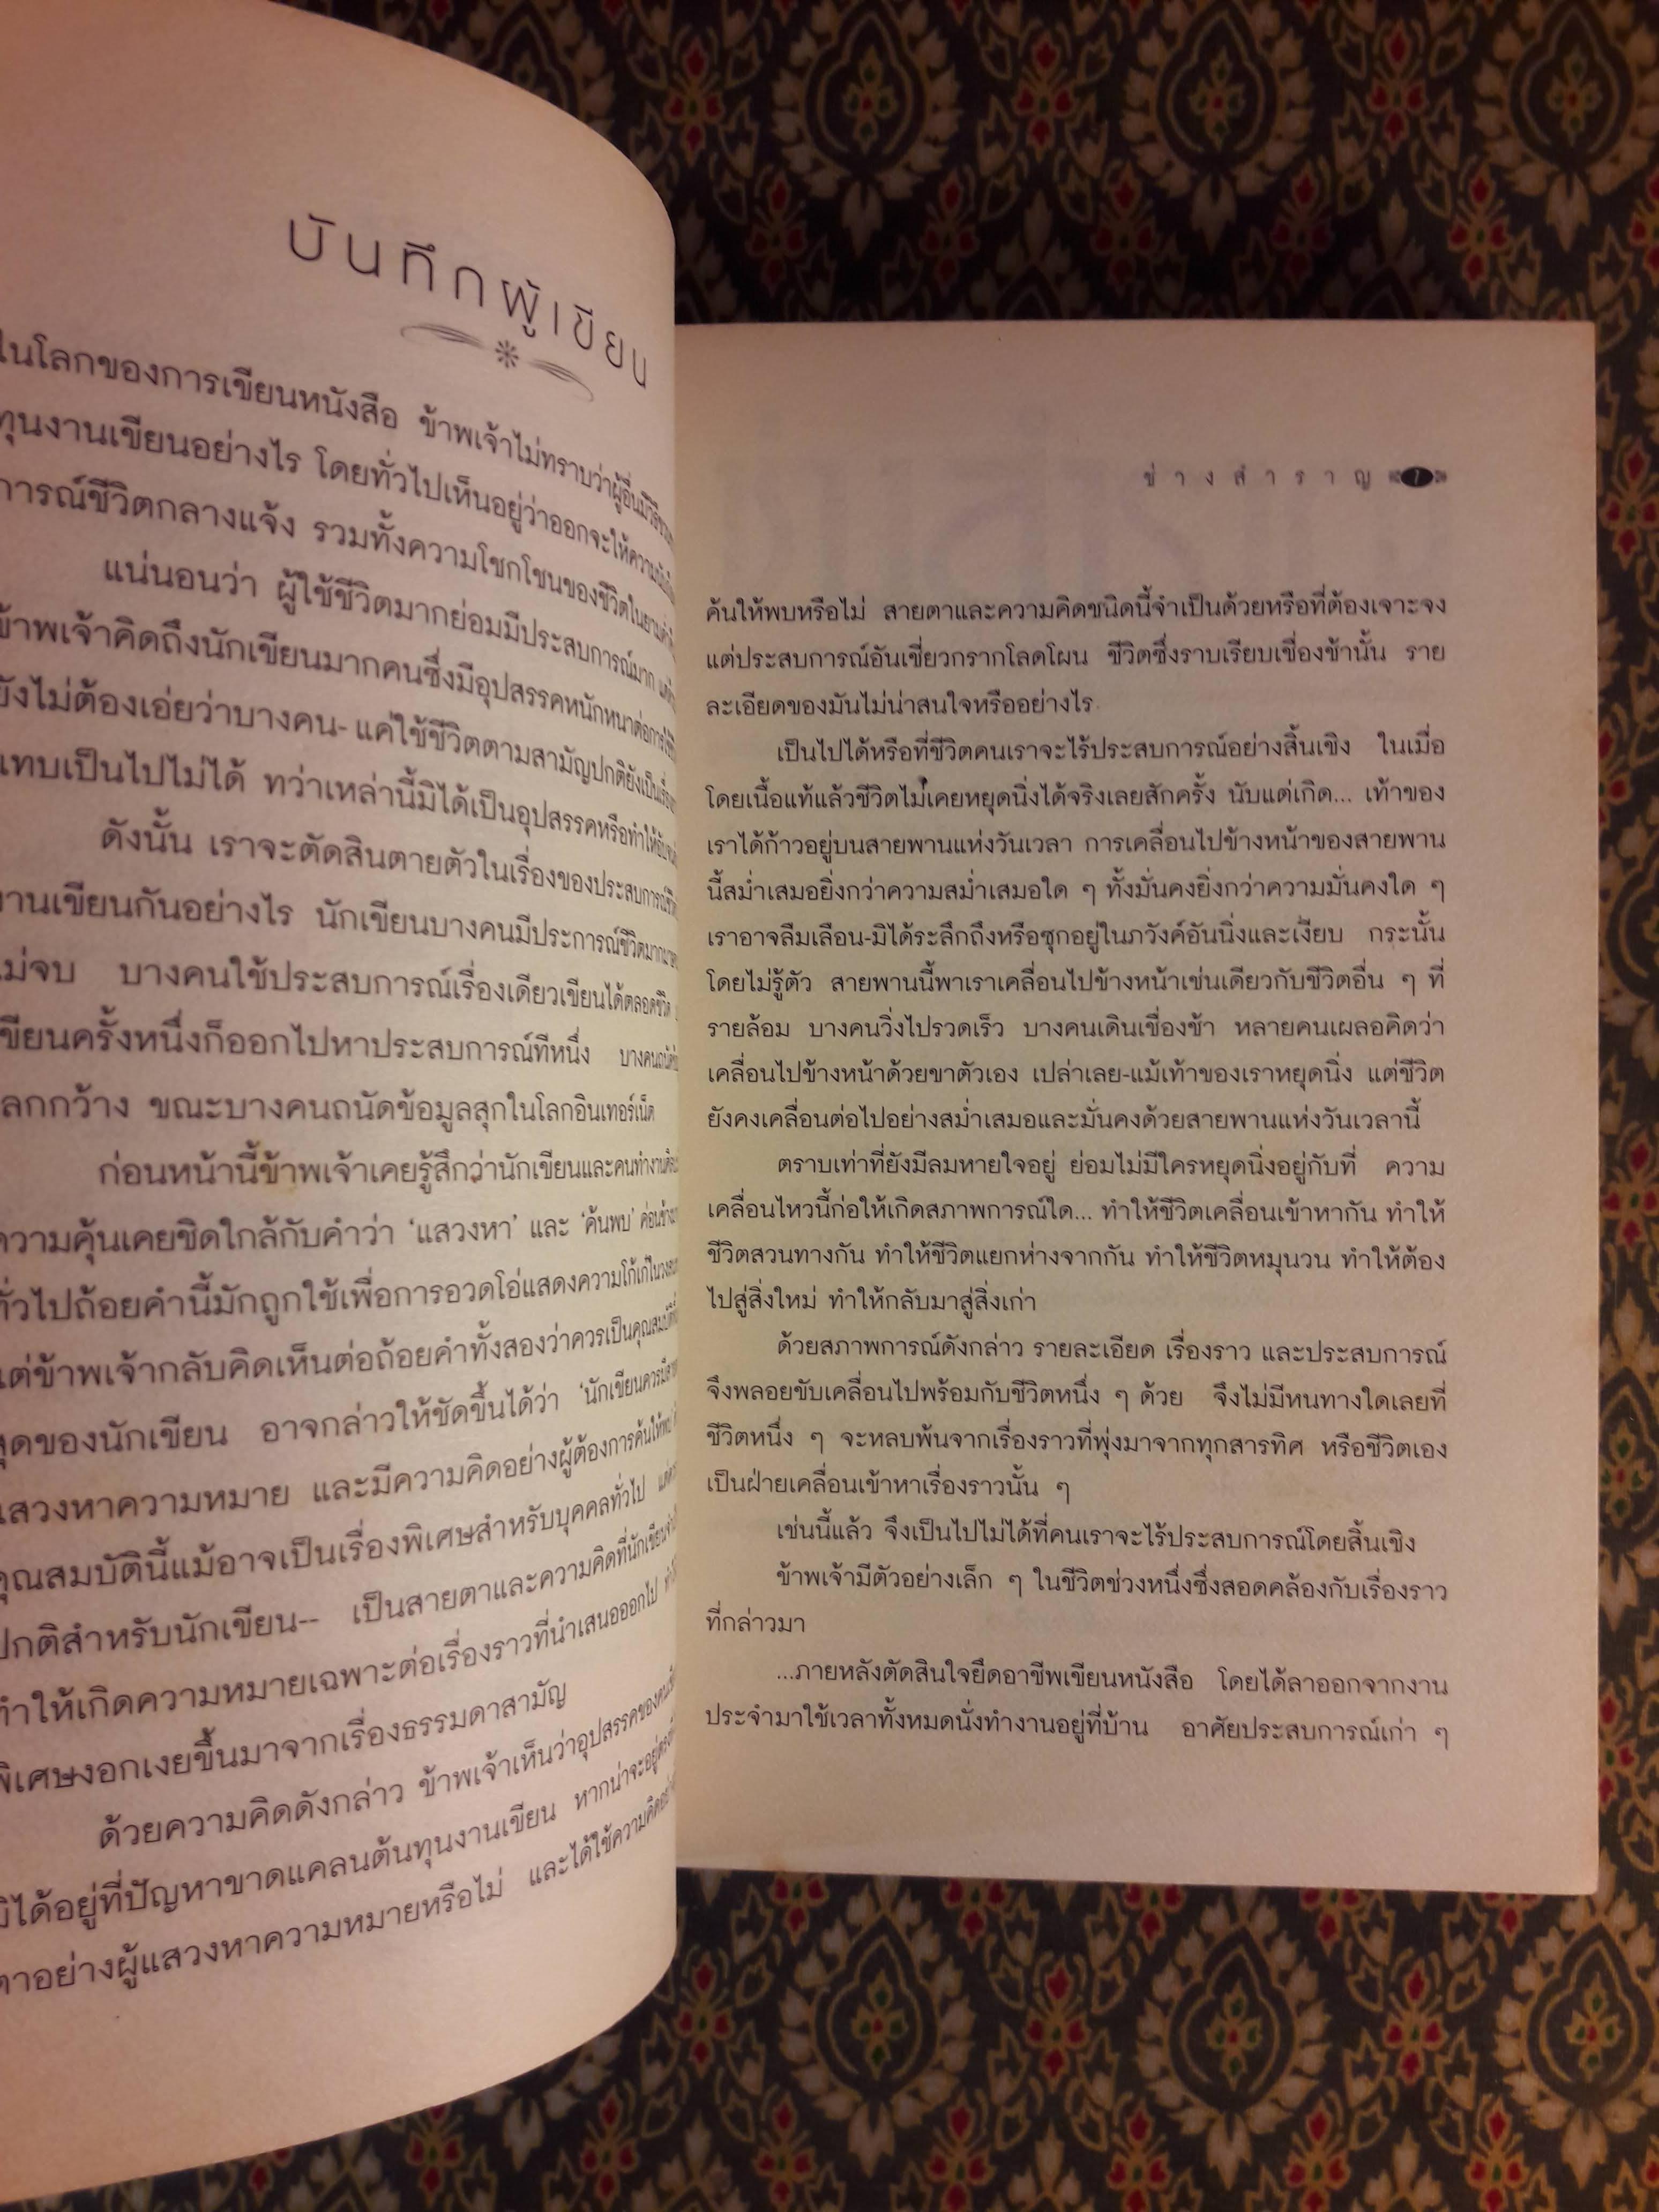 บันทึกผู้เขียน
ในโลกของการเขียนหนังสือ ข้าพเจ้าไม่ทราบว่าผู้อื่นมีวิธี
ทุนงานเขียนอย่างไร โดยทั่วไปเห็นอยู่ว่าออกจะให้ความ
การณ์ชีวิตกลางแจ้ง รวมทั้งความโชกโชนของชีวิตในยามค่ำ
แน่นอนว่า ผู้ใช้ชีวิตมากย่อมมีประสบการณ์มาก
ข้าพเจ้าคิดถึงนักเขียนมากคนซึ่งมีอุปสรรคหนักหนาต่อการใช้
ยังไม่ต้องเอ่ยว่าบางคน- แค่ใช้ชีวิตตามสามัญปกติยังเป็นเรื่อง
แทบเป็นไปไม่ได้ ทว่าเหล่านี้มิได้เป็นอุปสรรคหรือทำให้
ดังนั้น เราจะตัดสินตายตัวในเรื่องของประสบการณ์ชีวิต
งานเขียนกันอย่างไร นักเขียนบางคนมีประการณ์ชีวิตมากมาย
ไม่จบ บางคนใช้ประสบการณ์เรื่องเดียวเขียนได้ตลอดชีวิต
เขียนครั้งหนึ่งก็ออกไปหาประสบการณ์ทีหนึ่ง บางคนถนัด
โลกกว้าง ขณะบางคนถนัดข้อมูลสุกในโลกอินเทอร์เน็ต
ก่อนหน้านี้ข้าพเจ้าเคยรู้สึกว่านักเขียนและคนทำงานศิลปะ
ความคุ้นเคยชิดใกล้กับคำว่า ‘แสวงหา’ และ ‘ค้นพบ’ ค่อนข้าง
ทั่วไปถ้อยคำนี้มักถูกใช้เพื่อการอวดโอ่แสดงความโก้เก๋ในวง
แต่ข้าพเจ้ากลับคิดเห็นต่อถ้อยคำทั้งสองว่าควรเป็นคุณสมบัติ
สุดของนักเขียน อาจกล่าวให้ชัดขึ้นได้ว่า ‘นักเขียนควรมี
แสวงหาความหมาย และมีความคิดอย่างผู้ต้องการค้นให้พบ’
คุณสมบัตินี้แม้อาจเป็นเรื่องพิเศษสำหรับบุคคลทั่วไป
ปกติสำหรับนักเขียน-- เป็นสายตาและความคิดที่นักเขียน
ทำให้เกิดความหมายเฉพาะต่อเรื่องราวที่นำเสนอออกไป
พิเศษงอกเงยขึ้นมาจากเรื่องธรรมดาสามัญ
ด้วยความคิดดังกล่าว ข้าพเจ้าเห็นว่าอุปสรรคของคน
มิได้อยู่ที่ปัญหาขาดแคลนต้นทุนงานเขียน หากน่าจะอยู่ตรงที่
ตาอย่างผู้แสวงหาความหมายหรือไม่ และได้ใช้ความคิดอย่าง
ช่างสำราญ 7
ค้นให้พบหรือไม่ สายตาและความคิดชนิดนี้จำเป็นด้วยหรือที่ต้องเจาะจง
แต่ประสบการณ์อันเชี่ยวกรากโลดโผน ชีวิตซึ่งราบเรียบเชื่องช้านั้น ราย
ละเอียดของมันไม่น่าสนใจหรืออย่างไร
เป็นไปได้หรือที่ชีวิตคนเราจะไร้ประสบการณ์อย่างสิ้นเชิง ในเมื่อ
โดยเนื้อแท้แล้วชีวิตไม่เคยหยุดนิ่งได้จริงเลยสักครั้ง นับแต่เกิด... เท้าของ
เราได้ก้าวอยู่บนสายพานแห่งวันเวลา การเคลื่อนไปข้างหน้าของสายพาน
นี้สม่ำเสมอยิ่งกว่าความสม่ำเสมอใด ๆ ทั้งมั่นคงยิ่งกว่าความมั่นคงใด ๆ
เราอาจลืมเลือน-มิได้ระลึกถึงหรือซุกอยู่ในภวังค์อันนิ่งและเงียบ กระนั้น
โดยไม่รู้ตัว สายพานนี้พาเราเคลื่อนไปข้างหน้าเช่นเดียวกับชีวิตอื่น ๆ ที่
รายล้อม บางคนวิ่งไปรวดเร็ว บางคนเดินเชื่องช้า หลายคนเผลอคิดว่า
เคลื่อนไปข้างหน้าด้วยขาตัวเอง เปล่าเลย-แม้เท้าของเราหยุดนิ่ง แต่ชีวิต
ยังคงเคลื่อนต่อไปอย่างสม่ำเสมอและมั่นคงด้วยสายพานแห่งวันเวลานี้
ตราบเท่าที่ยังมีลมหายใจอยู่ ย่อมไม่มีใครหยุดนิ่งอยู่กับที่ ความ
เคลื่อนไหวนี้ก่อให้เกิดสภาพการณ์ใด... ทำให้ชีวิตเคลื่อนเข้าหากัน ทำให้
ชีวิตสวนทางกัน ทำให้ชีวิตแยกห่างจากกัน ทำให้ชีวิตหมุนวน ทำให้ต้อง
ไปสู่สิ่งใหม่ ทำให้กลับมาสู่สิ่งเก่า
ด้วยสภาพการณ์ดังกล่าว รายละเอียด เรื่องราว และประสบการณ์
จึงพลอยขับเคลื่อนไปพร้อมกับชีวิตหนึ่ง ๆ ด้วย จึงไม่มีหนทางใดเลยที่
ชีวิตหนึ่ง ๆ จะหลบพ้นจากเรื่องราวที่พุ่งมาจากทุกสารทิศ หรือชีวิตเอง
เป็นฝ่ายเคลื่อนเข้าหาเรื่องราวนั้น ๆ
เช่นนี้แล้ว จึงเป็นไปไม่ได้ที่คนเราจะไร้ประสบการณ์โดยสิ้นเชิง
ข้าพเจ้ามีตัวอย่างเล็ก ๆ ในชีวิตช่วงหนึ่งซึ่งสอดคล้องกับเรื่องราว
ที่กล่าวมา
...ภายหลังตัดสินใจยึดอาชีพเขียนหนังสือ โดยได้ลาออกจากงาน
ประจำมาใช้เวลาทั้งหมดนั่งทำงานอยู่ที่บ้าน อาศัยประสบการณ์เก่า ๆ